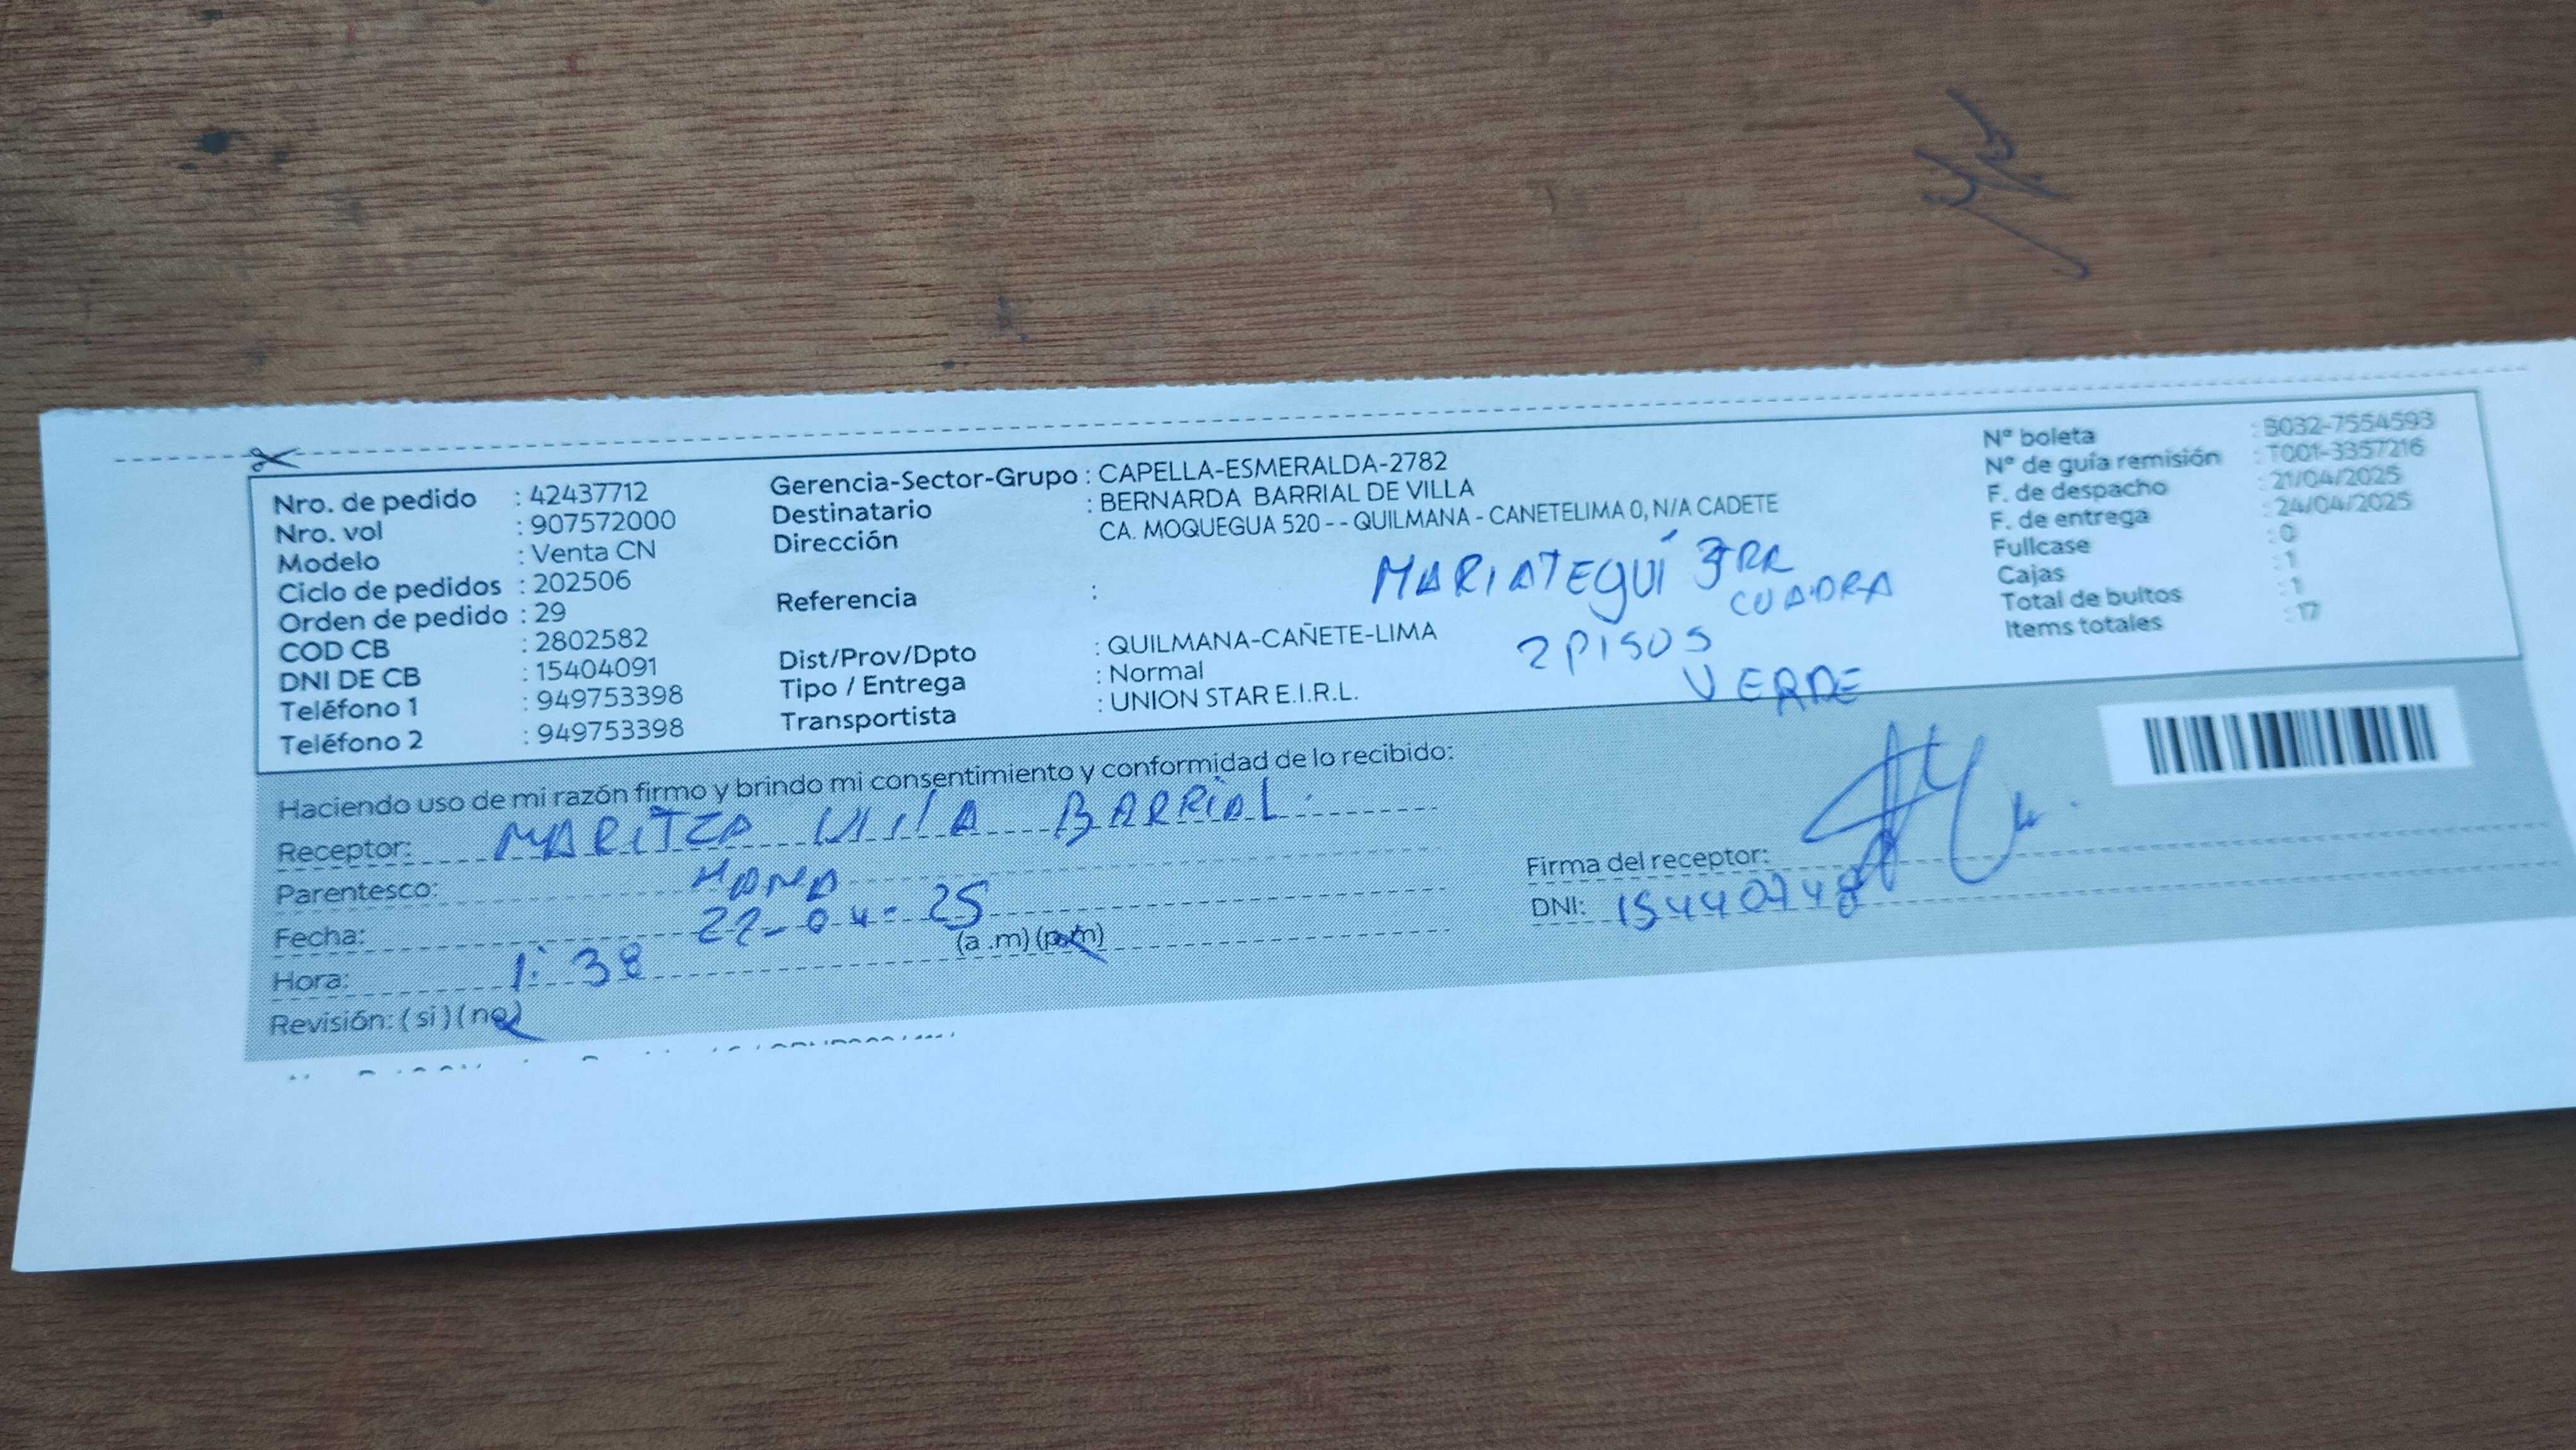 Nro. de pedido : 42437712
Nro. vol : 907572000
Modelo : Venta CN
Ciclo de pedidos : 202506
Orden de pedido : 29
COD CB : 2802582
DNI DE CB : 15404091
Teléfono 1 : 949753398
Teléfono 2 : 949753398
Gerencia-Sector-Grupo : CAPELLA-ESMERALDA-2782
Destinatario : BERNARDA BARRIAL DE VILLA
Dirección CA. MOQUEGUA 520 - - QUILMANA - CANETELIMA 0, N/A CADETE
Referencia :
MARIATEGUÍ 3RA
CUADRA
2 PISOS
VERDE
Dist/Prov/Dpto : QUILMANA-CAÑETE-LIMA
Tipo / Entrega : Normal
Transportista : UNION STAR E.I.R.L.
N° boleta : B032-7554593
N° de guía remisión : T001-3357216
F. de despacho : 21/04/2025
F. de entrega : 24/04/2025
Fullcase : 0
Cajas : 1
Total de bultos : 1
Items totales : 17
Haciendo uso de mi razón firmo y brindo mi consentimiento y conformidad de lo recibido:
Receptor: MARITZA VILLA BARRIAL.
Parentesco:
Fecha: 22-04-25
Hora: 1:38 (a .m) (p.m)
Revisión: ( si ) ( no )
Firma del receptor:
DNI: 15440748